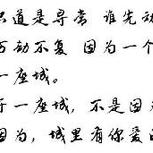 只道是寻常 谁先动
万劫不复 因为一个
一座城。
一座城，不是因
因为，城里有你爱的